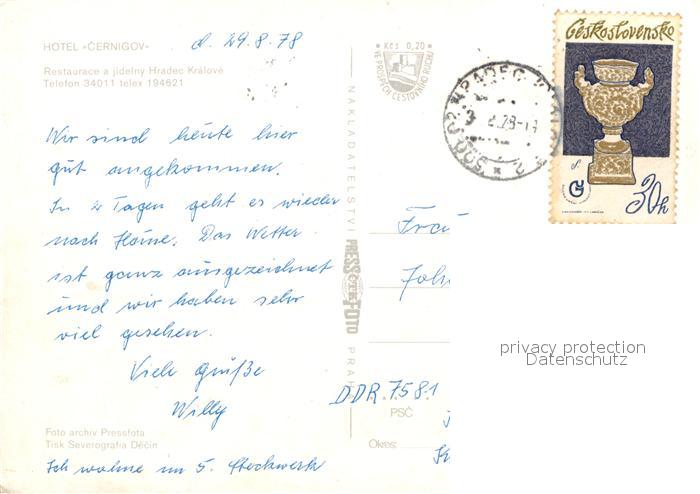 HOTEL «ČERNIGOV»
d. 29.8.78
Restaurace a jídelny Hradec Králové
Telefon 34011 telex 194621
Kčs 0,20
VE PROSPĚCH CESTOVNÍHO RUCHU
HRADEC
Československo
30h
Wir sind heute hier
gut angekommen.
In 2 Tagen geht es wieder
nach Hause. Das Wetter
ist ganz ausgezeichnet
und wir haben sehr
viel gesehen.
Viele Grüße
Willy
NAKLADATELSTVÍ PRESSFOTO PRAHA
DDR 7581
PSČ
Okres:
privacy protection
Datenschutz
Foto archiv Pressfota
Tisk Severografia Děčín
Ich wohne im 5. Stockwerk